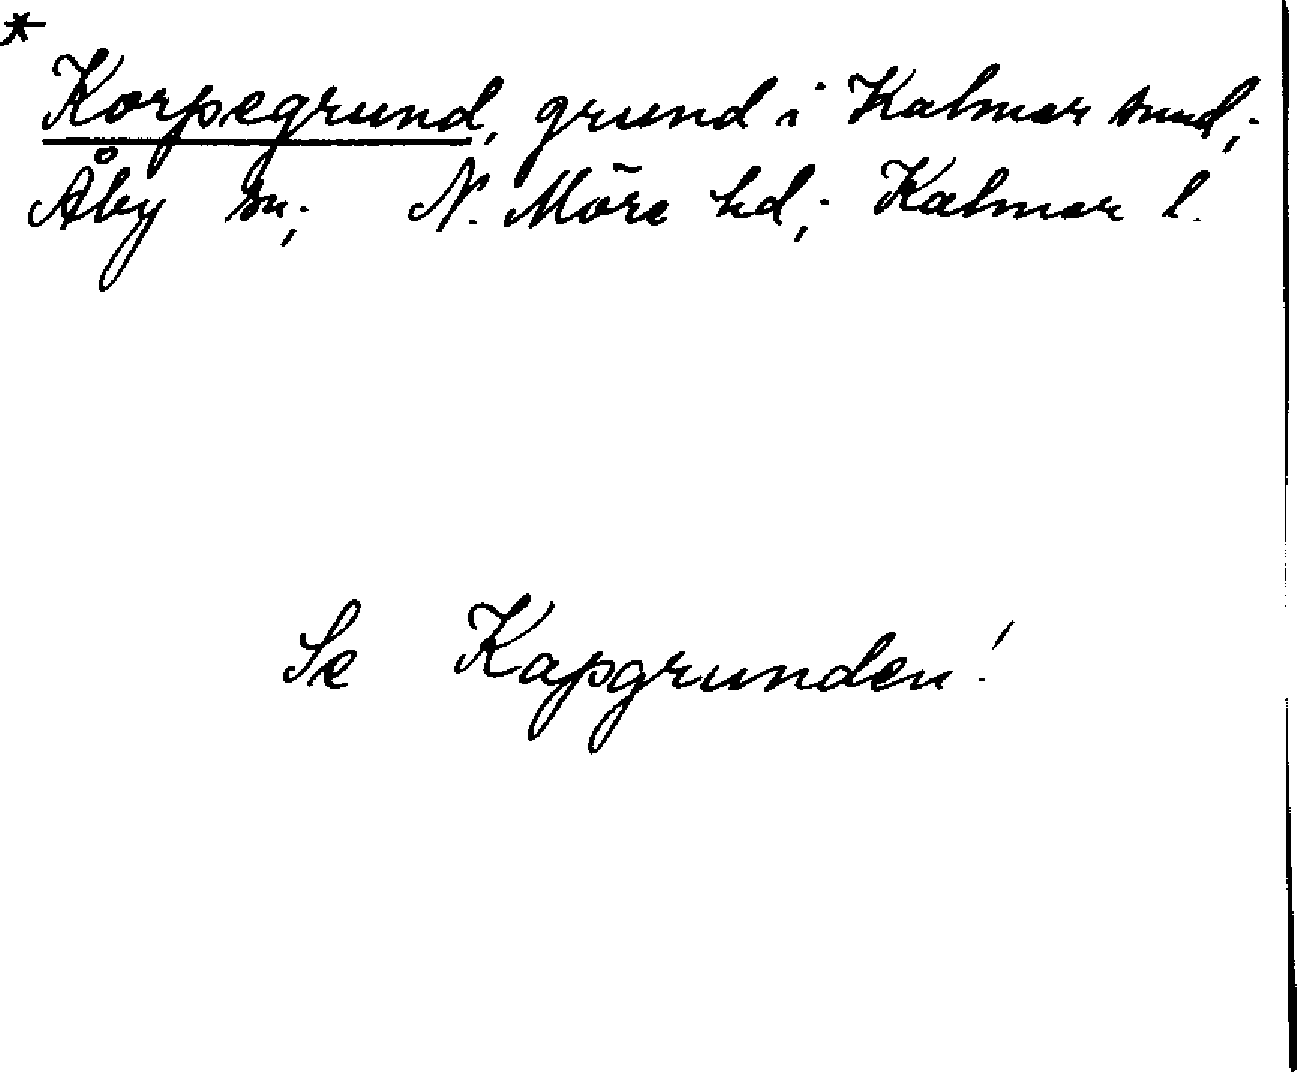 *
Korpegrund, grund i Kalmar sund;
Åby sn; N. Möre hd; Kalmar l.
Se Kapgrunden!